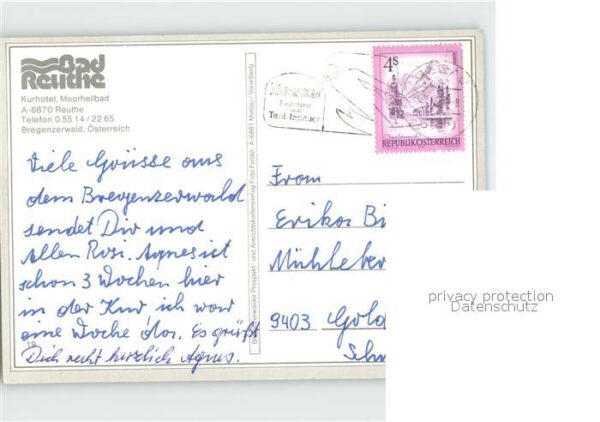 Bad
Reuthe
Kurhotel, Moorheilbad
A-6870 Reuthe
Telefon 0 55 14 / 22 65
Bregenzerwald, Österreich
Viele Grüsse aus
dem Bregenzerwald
sendet Dir und
Allen Rosi. Agnes ist
schon 3 Wochen hier
in der Kur, ich war
eine Woche dor. Es grüßt
Dich recht herzlich Agnes.
Bregenzerwälder Prospekt- und Ansichtskartenverlag Foto Feider, A-6881 Mellau / Vorarlberg
4s
REPUBLIK ÖSTERREICH
From
Erika Bi
Mühleber
9403 Gold
Schw
privacy protection
Datenschutz